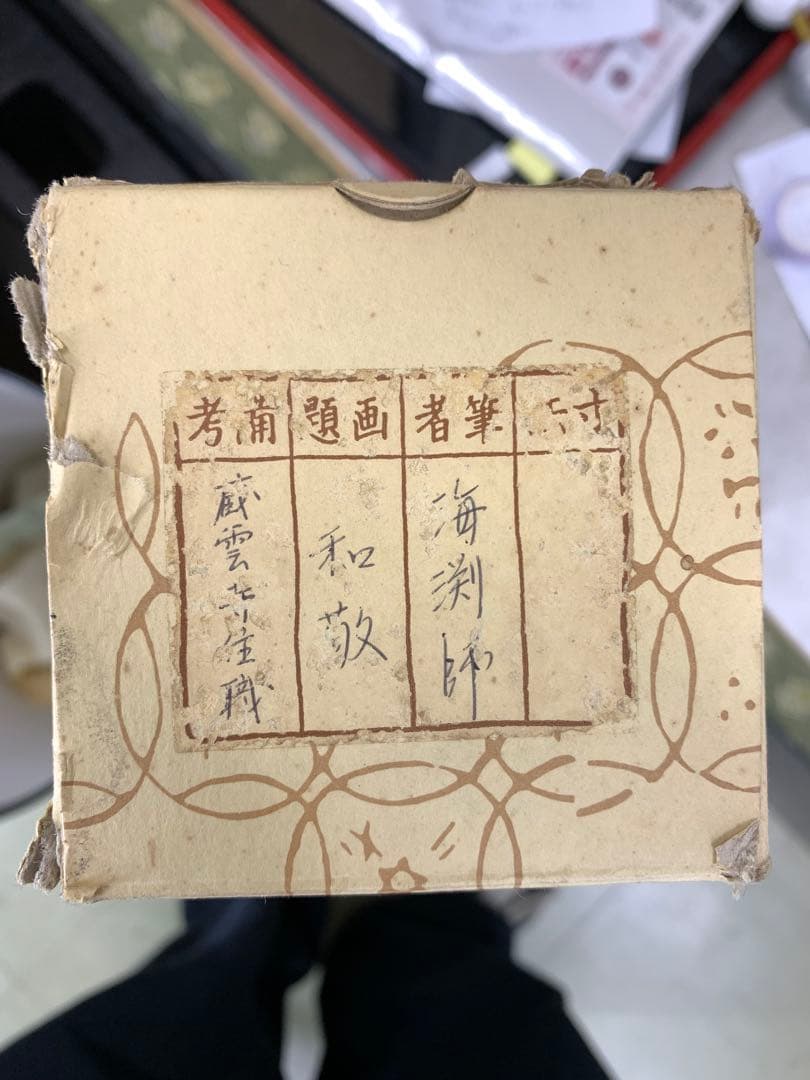 寸
筆者
海渕師
画題
和敬
備考
蔵雲寺住職